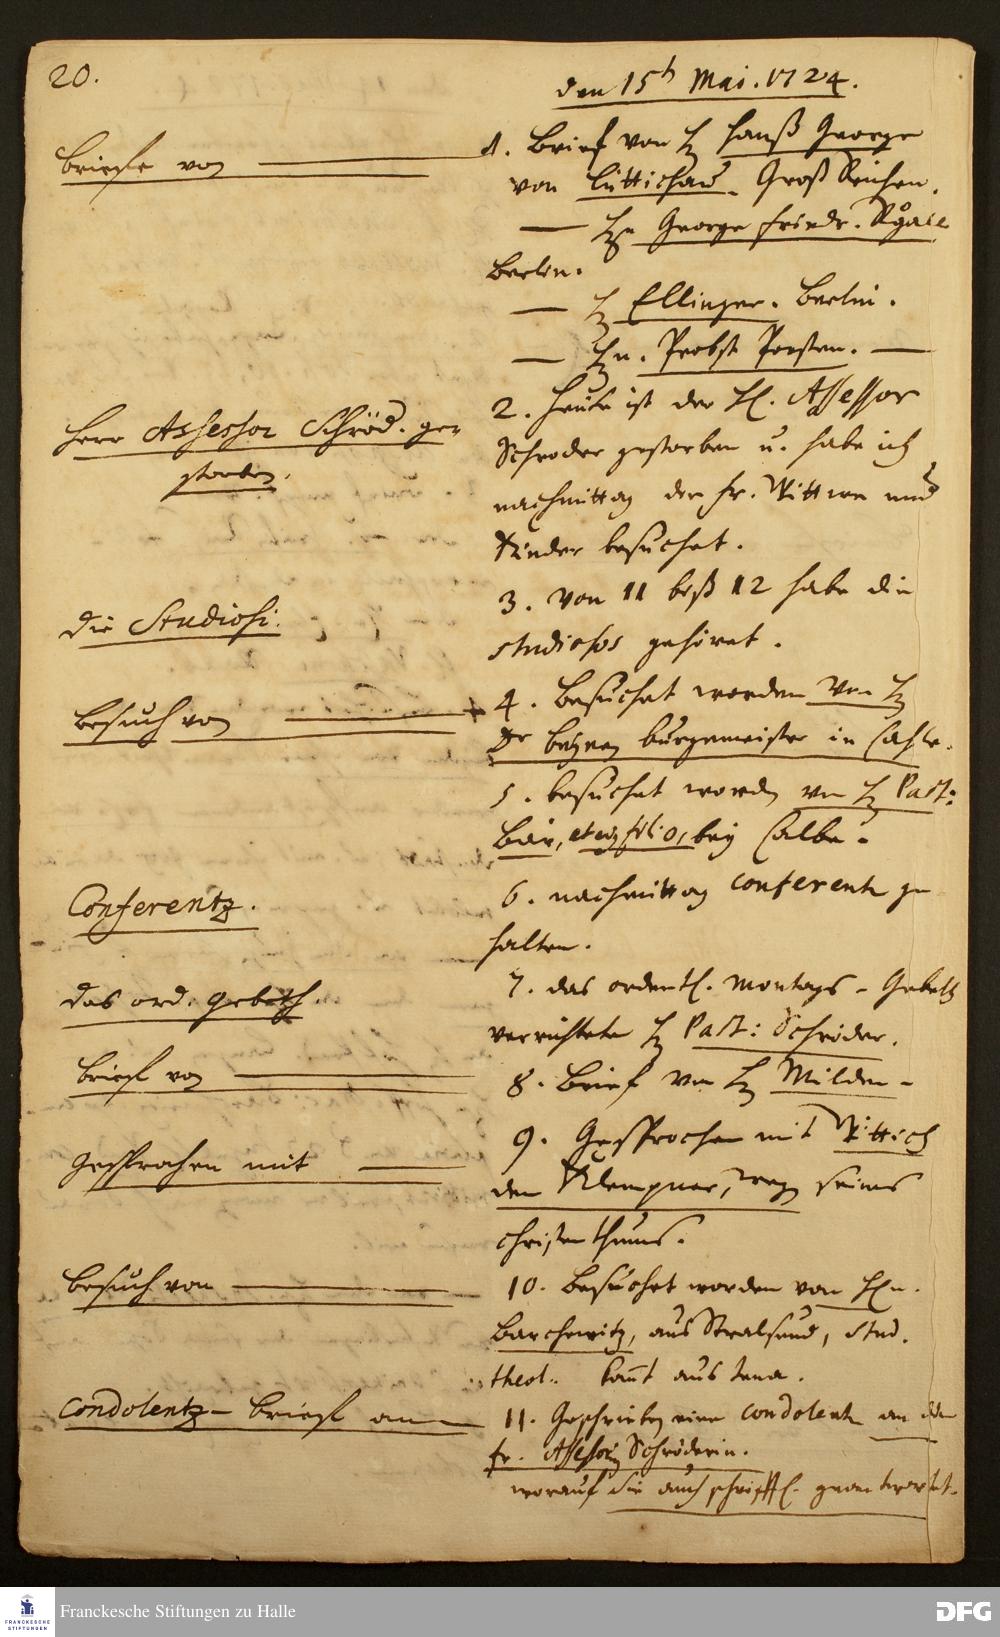 20.
den 15h Mai. 1724.
briefe von
1. Brief von H hanß George
von Lüttichau. Groß Leichen.
— Hn George friedr. Rgale
Berlin.
— H Ellinger. Berlin.
— Hn. Probst Porsten. —
Herr Assessor Schröd. ge-
storben.
2. heute ist der H. Assessor
Schroder gestorben u. habe ich
nachmittag der fr. Wittwe und
Kinder besuchet.
die Studiosi.
3. Von 11 biß 12 habe die
studiosos gehöret.
besuch von
4. Besuchet worden von H
Dr burgemeister in Calbe.
5. besuchet worden von H Past:
Bär, et ejus filio, bey Calbe.
Conferentz.
6. nachmittag conferentz ge-
halten.
das ord. gebeth.
7. das ordentl. Montags-Gebeth
verrichtete H Past: Schröder.
brief von
8. Brief von H Milden-
gesprochen mit
9. Gesprochen mit Wittich
den Klempner, weg. seines
christenthums.
besuch von
10. Besuchet worden von Hn.
Barchewitz, aus Stralsund, stud.
theol. komt aus Jena.
Condolentz-brief an
11. Geschrieben eine condolentz an die
fr. Assessorin Schröderin.
worauf sie auch schrifftl. geantwortet.
Franckesche Stiftungen zu Halle
FRANCKESCHE
STIFTUNGEN
DFG